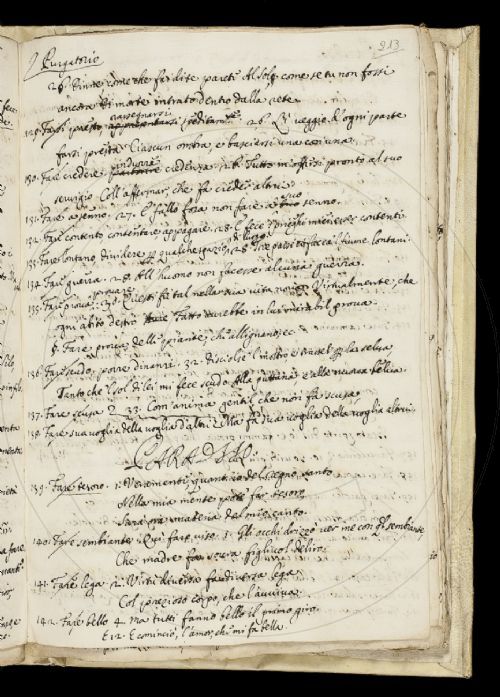 Purgatorio
213
26. Dinne com'è che fai di te pareti Al sol, come se tu non fossi
ancora di morte intrato dentro dalla rete
129. Farsi presto appresentarsi 26. Lì veggio d'ogni parte
farsi presta Ciascun ombra, e basciarsi una con una.
130. Fare credere, indurre credenza. 26. Tutto m'offersi pronto al suo
servigio Coll'affermar, che fa credere altrui
131. Fare a senno. 27. E fallo fora non fare a suo senno.
132. Far contento, contentare appagare. 28. E fece i miei contenti.
133. Fare lontano, dividere per qualche spazio di luogo. 28. Tre passi ci facea il fiume lontani.
134. Far guerra. 28. All'huomo non facesse alcuna guerra.
135. Fare prova. 30. Questi fu tal nella sua vita nova Virtualmente, che
ogni abito destro Fatto averebbe in lui mirabil prova.
§. Fare prova, delle piante, ch'allignano, ec.
136. Fare scudo, porre dinanzi. 32. Disciolse il mostro e per la selva
Tanto che sol di lei mi fece scudo Alla puttana e alla nuova belva.
137. Fare scusa 33. Com'anima gentil che non fa scusa
138. Fare sua voglia della voglia d'altri. Ma fa sua voglia della voglia altrui.
PARADISO.
139. Fare tesoro. 1. Veramente quant'io del regno santo
Nella mia mente potei far tesoro
Sarà ora materia del mio canto.
140. Fare sembiante. Qui fare viso. 1. Gli occhi drizzò ver me con quel sembiante,
Che madre fa sovra figliuol deliro.
141. Fare lega. 2. Virtù diversa fa diversa lega
Col prezioso corpo, che l'avviva.
142. Fare bello 4. Ma tutti fanno bello il primo giro.
E 12. E cominciò, l'amor, che mi fa bella